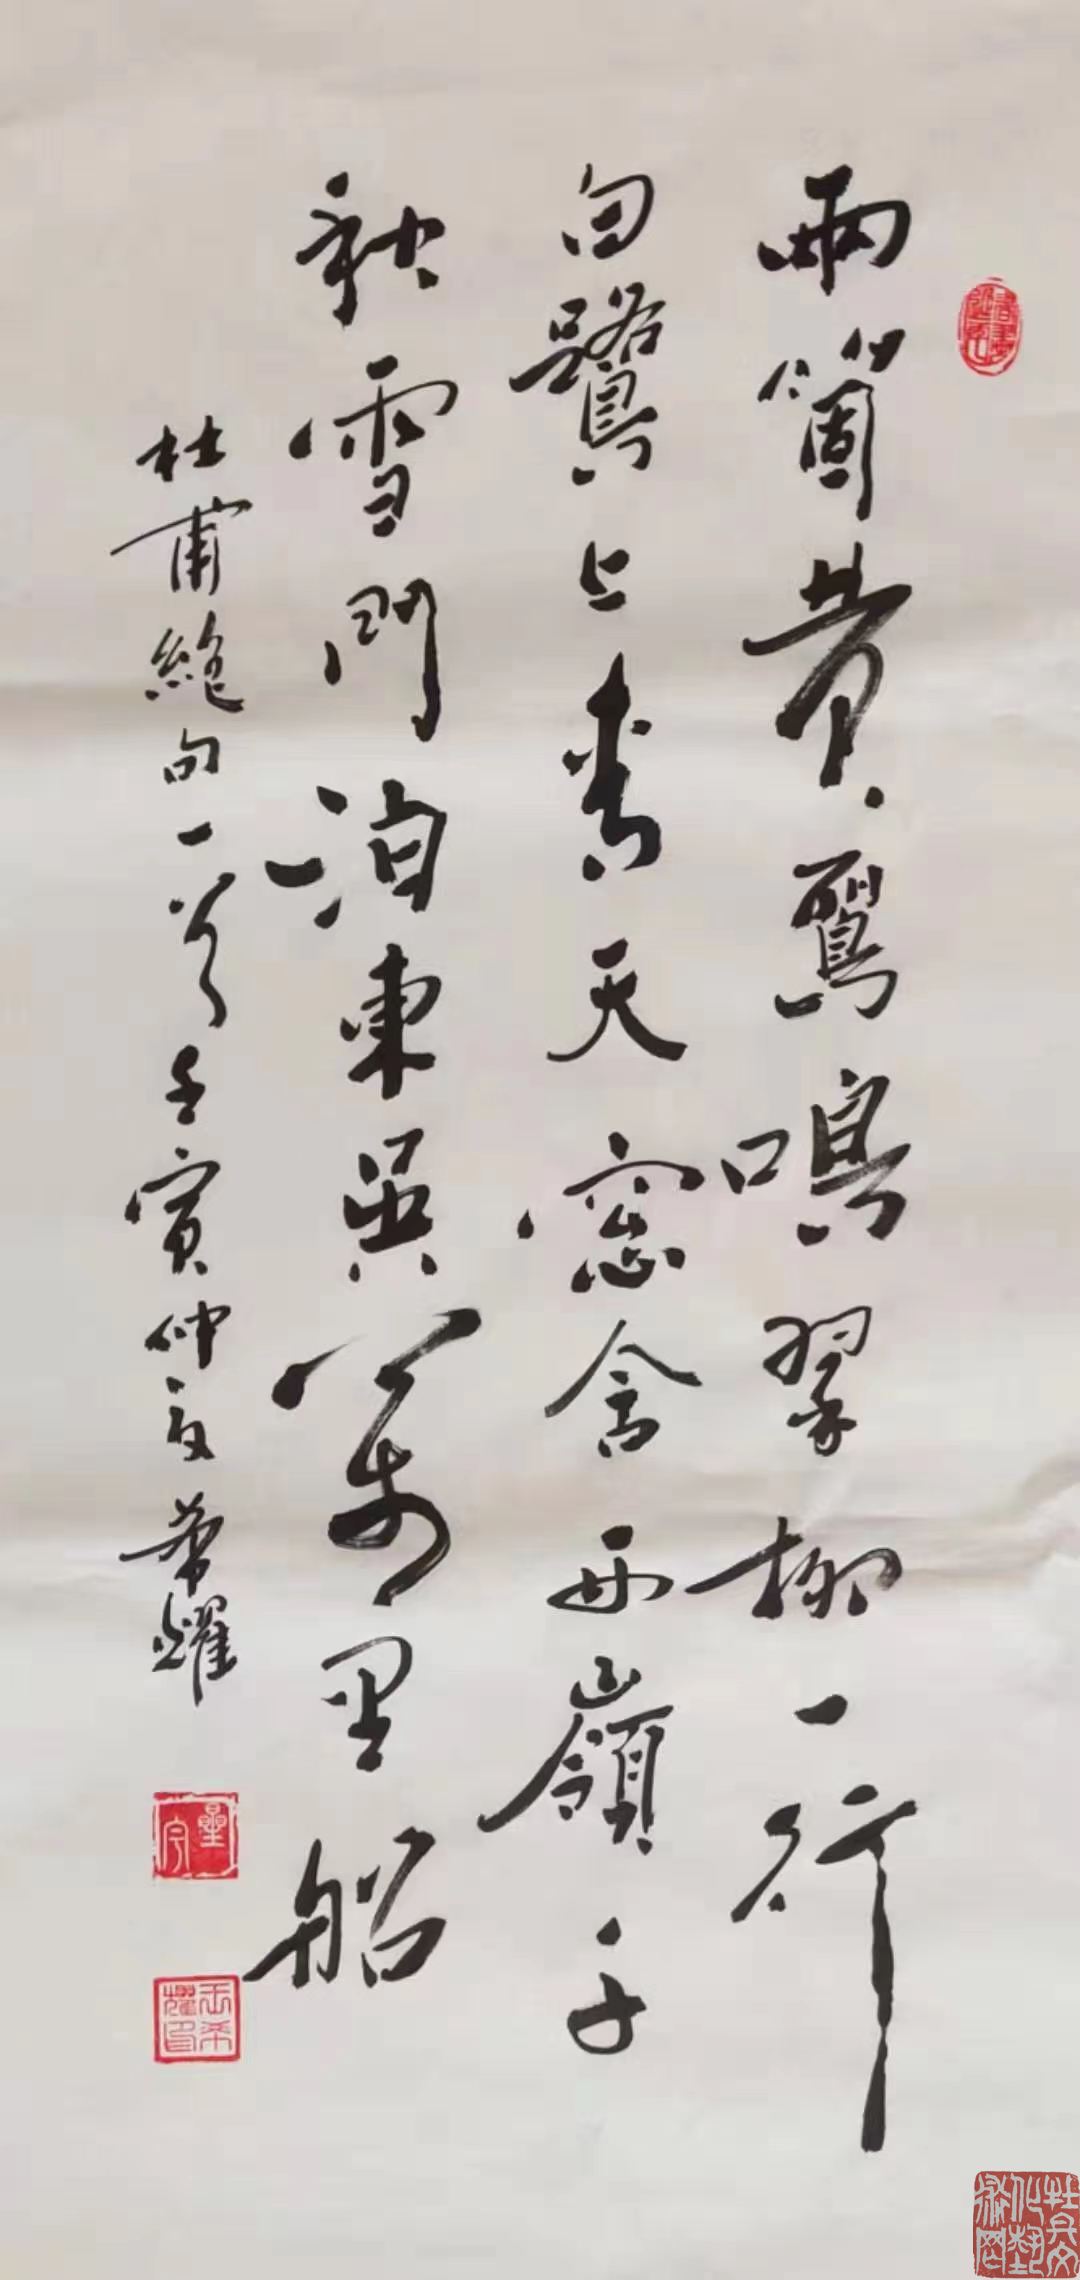 兩箇黄鸝鳴翠柳一行
白鷺上青天窓含西嶺千
秋雪門泊東吳萬里船
杜甫絶句一首壬寅仲夏希耀
王希耀印